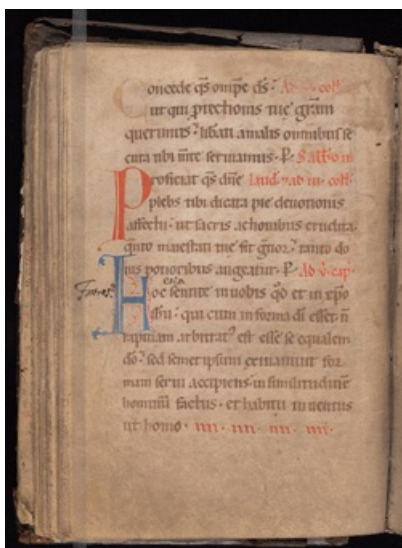 oncede qs omps ds. Ad v. coll.
ut qui ptechonis tue gram
querimus. libati a malis omnibus se
cura tibi mte seruiamus. P. Sabbo in
Proficiat qs dne laud. 7 ad iii. coll.
plebs tibi dicata pie deuotionis
affectu. ut sacris actionibus erudita.
qnto maiestati tue fit gnor. tanto do
nis potioribus augeatur. P. Ad v. cap.
Hoc sentite in uobis qd et in xpo
ihu. qui cum in forma di esset. n
rapinam arbitrat est esse se equalem
do. sed semet ipsum exinaniuit for
mam serui accipiens in similitudine
hominu factus. et habitu inuentus
ut homo.